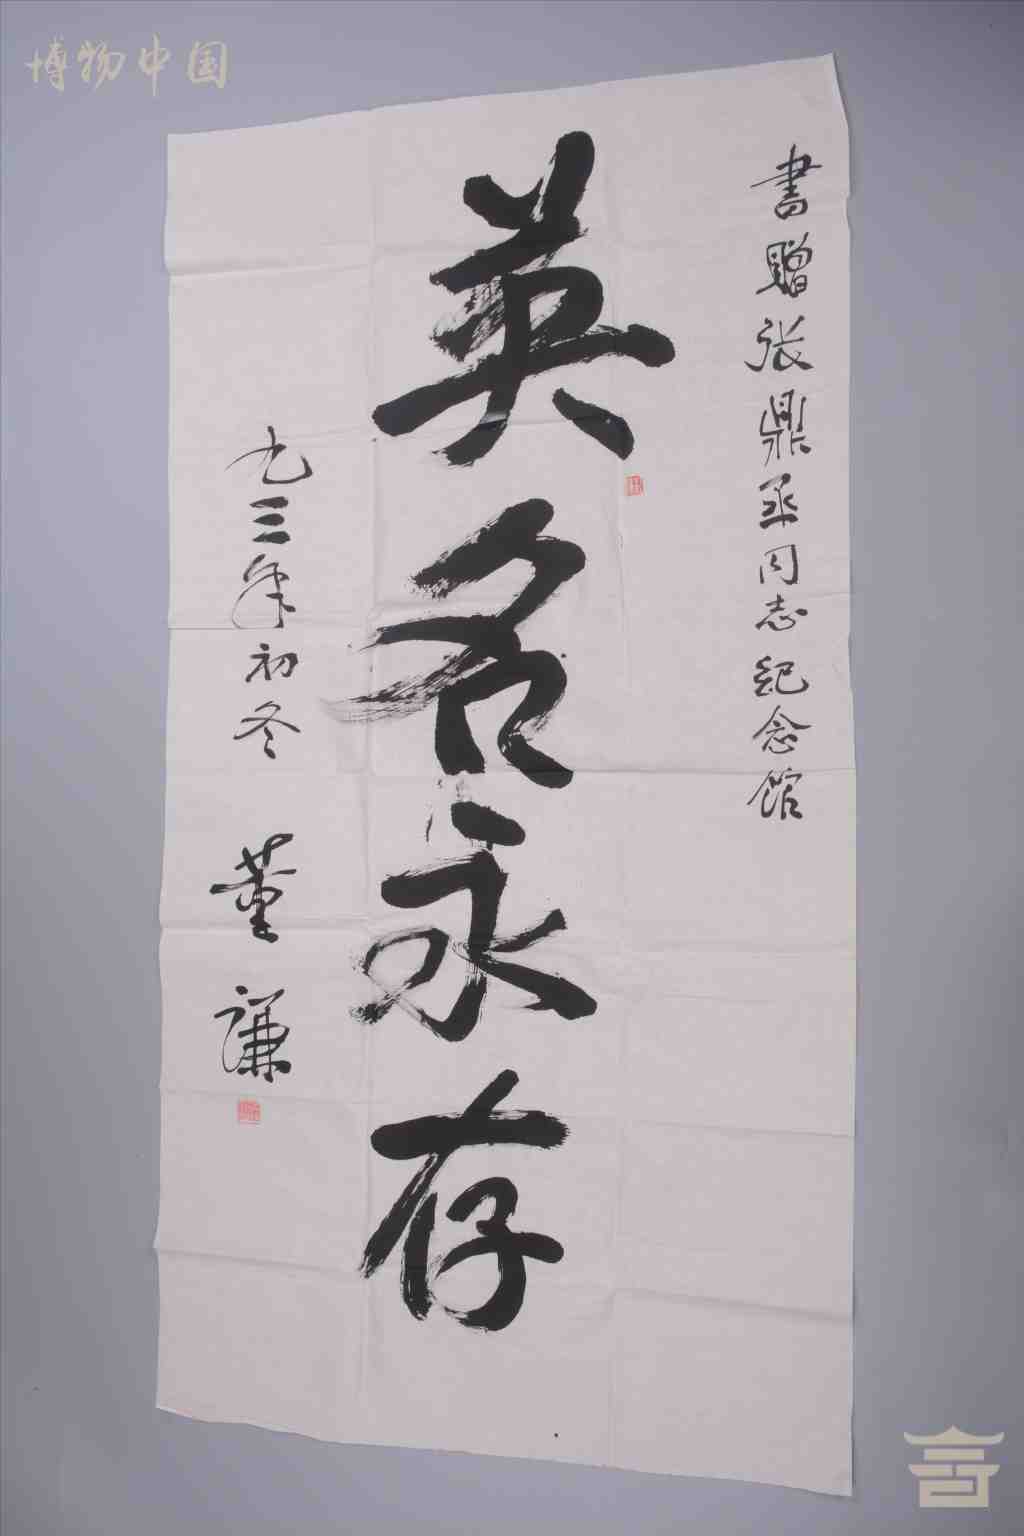 博物中国
書贈张鼎丞同志紀念馆
英名永存
九三年初冬
董谦